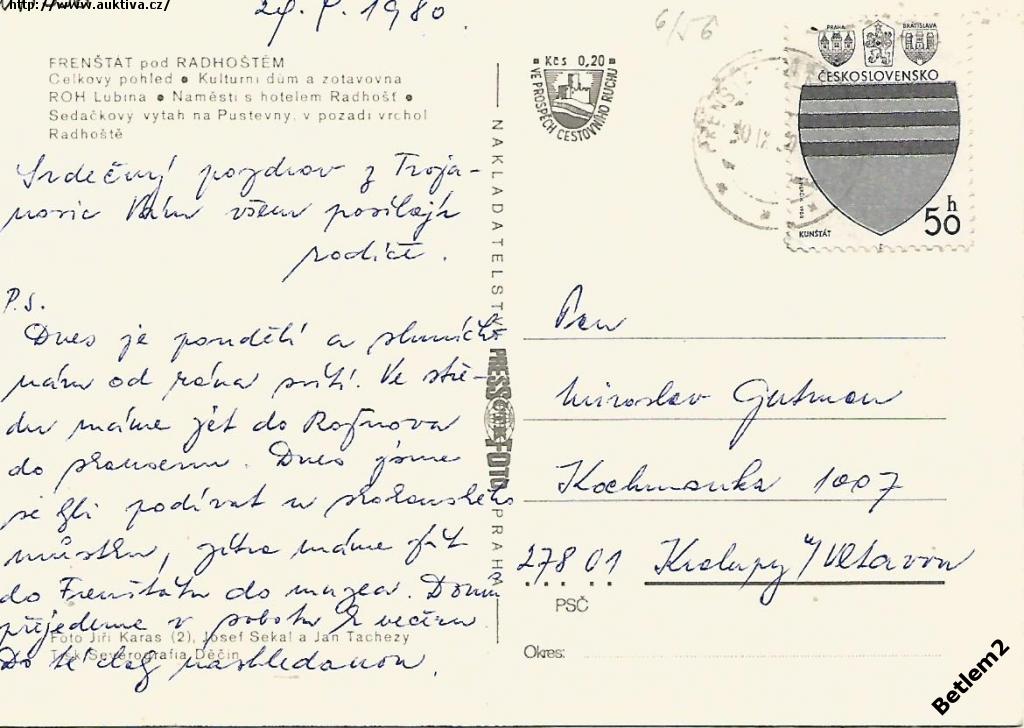 http://www.auktiva.cz/
1980
6/56
FRENŠTÁT pod RADHOŠTĚM
Celkový pohled • Kulturní dům a zotavovna
ROH Lubina • Náměstí s hotelem Radhošť •
Sedačkový výtah na Pustevny, v pozadí vrchol
Radhoště
Srdečný pozdrav z Troja-
novic Vám všem posílají
rodiče.
P.S.
Dnes je pondělí a sluníčko
nám od rána svítí. Ve stře-
du máme jet do Rožnova
do skansenu. Dnes jsme
se šli podívat u skokanského
můstku, zítra máme jít
do Frenštátu do muzea. Domů
přijedeme v sobotu k večeru
Foto Jiří Karas (2), Josef Sekal a Jan Tachezy
Tisk Severografia Děčín
Do té doby nashledanou.
NAKLADATELSTVÍ PRESSFOTO PRAHA
Kčs 0,20
VE PROSPĚCH CESTOVNÍHO RUCHU
PRAHA
BRATISLAVA
ČESKOSLOVENSKO
KUNŠTÁT
50 h
Pan
Miroslav Gutman
1007
278 01 Kralupy n/Vltavou
PSČ
Okres:
Betlem2